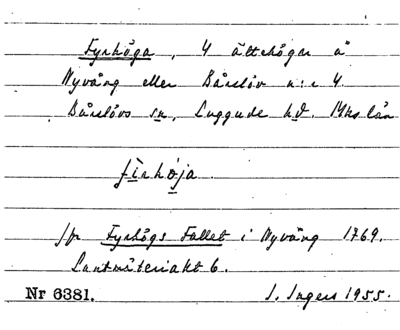 Fyrhöga, 4 ättehögar å
Nyvång eller Bårslöv n:r 4.
Bårslövs sn, Luggude hd. Mhs län
fìrhøja.
jfr Fyrhögs Fallet i Nyvång 1769.
Lantmäteriakt 6.
Nr 6381. I. Ingers 1955.